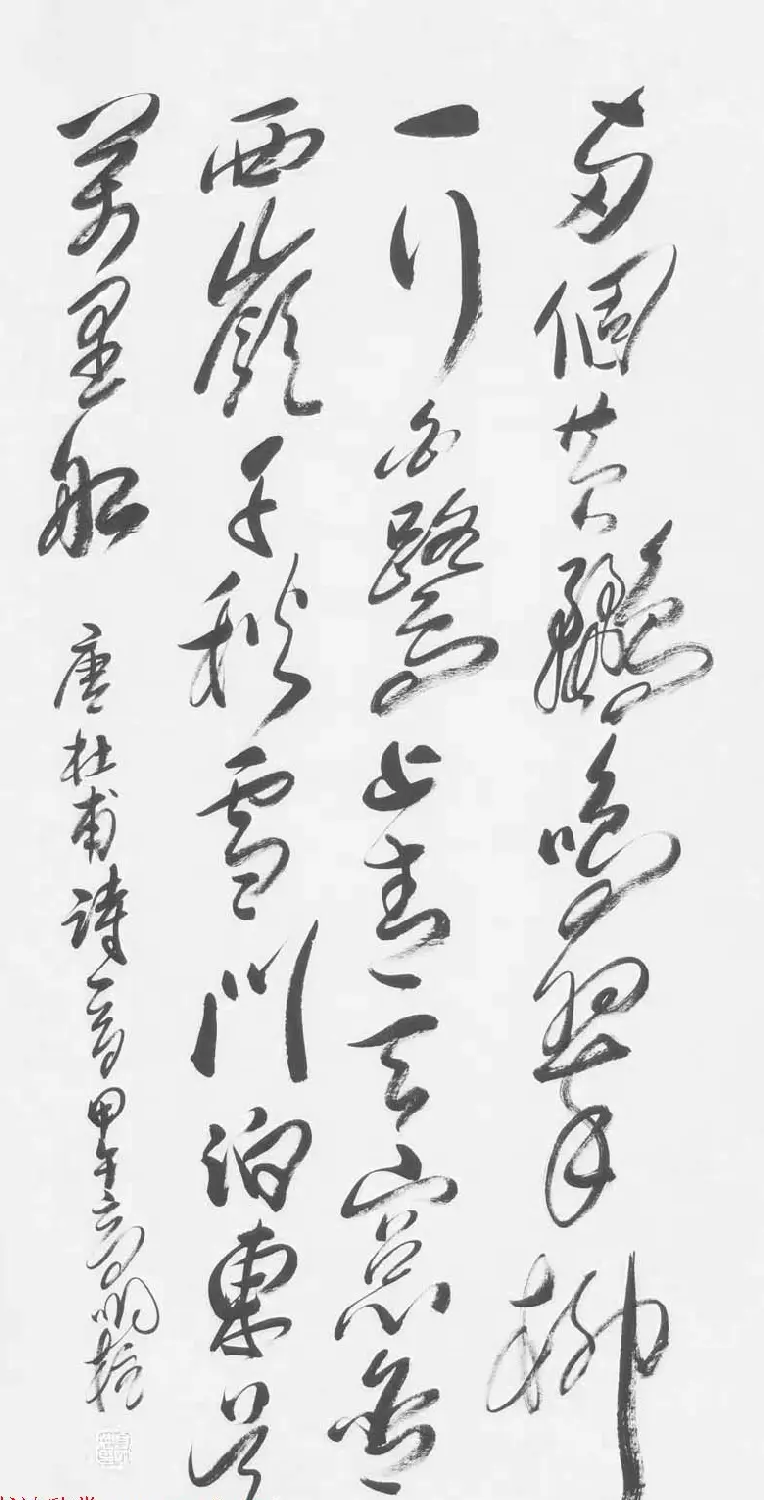 兩個黄鸝鳴翠柳
一行白鷺上青天窗含
西嶺千秋雪門泊東吴
萬里船 唐杜甫詩一首甲午高